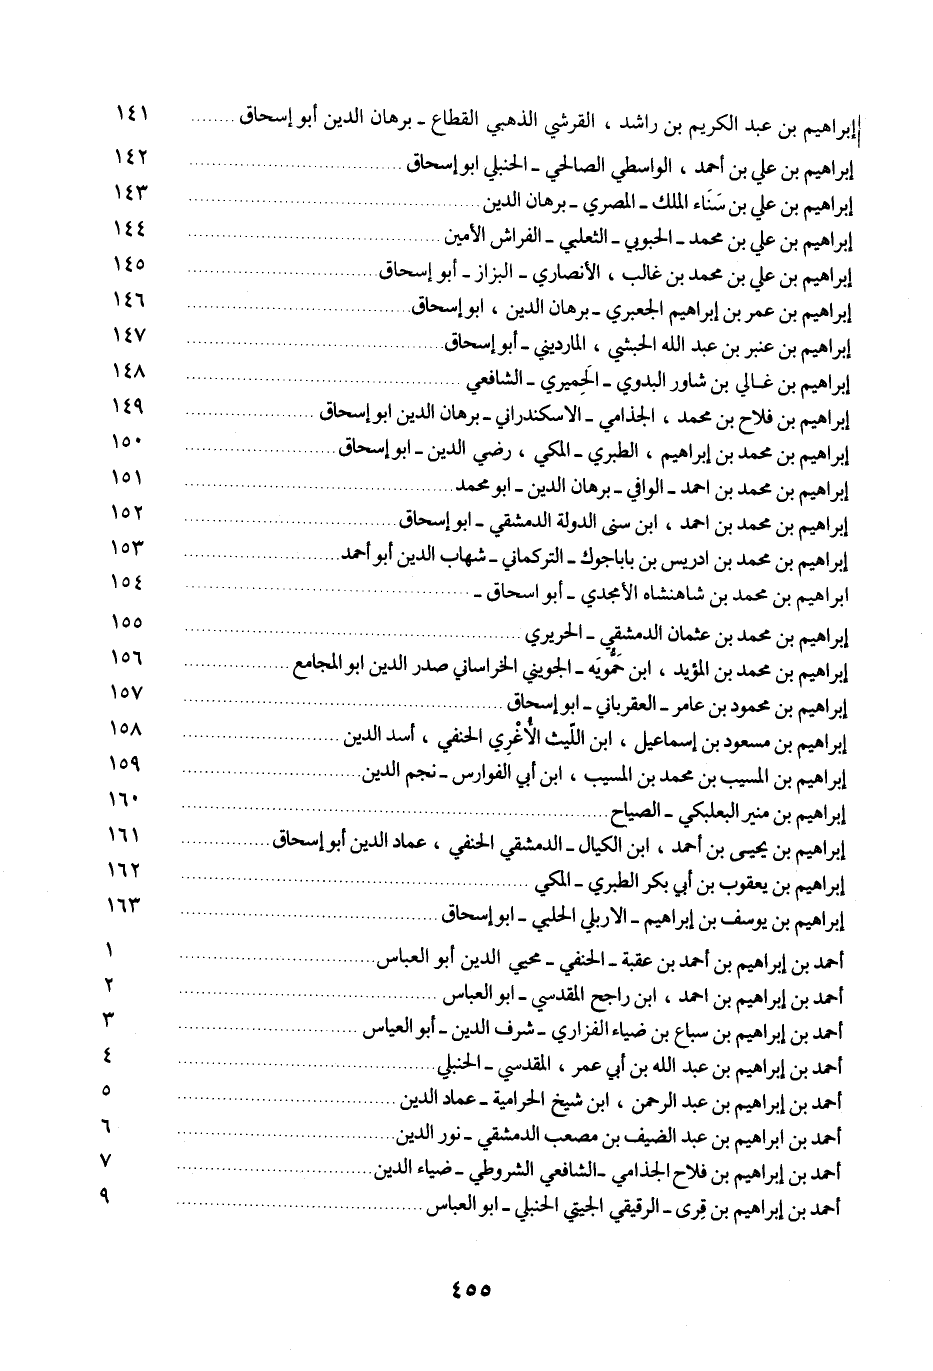 إبراهيم بن عبد الكريم بن راشد ، القرشي الذهبي القطاع ـ برهان الدين أبو إسحاق ........ ١٤١
إبراهيم بن علي بن أحمد ، الواسطي الصالحي ـ الحنبلي ابو إسحاق ........ ١٤٢
إبراهيم بن علي بن سَنَاء الملك ـ المصري ـ برهان الدين ........ ١٤٣
إبراهيم بن علي بن محمد ـ الحبوبي ـ الثعلبي ـ الفراش الأمين ........ ١٤٤
إبراهيم بن علي بن محمد بن غالب ، الأنصاري ـ البزاز ـ أبو إسحاق ........ ١٤٥
إبراهيم بن عمر بن إبراهيم الجعبري ـ برهان الدين ، ابو إسحاق ........ ١٤٦
إبراهيم بن عنبر بن عبد الله الحبشي ، المارديني ـ أبو إسحاق ........ ١٤٧
إبراهيم بن غالي بن شاور البدوي ـ الحَمِيري ـ الشافعي ........ ١٤٨
إبراهيم بن فلاح بن محمد ، الجذامي ـ الاسكندراني ـ برهان الدين ابو إسحاق ........ ١٤٩
إبراهيم بن محمد بن إبراهيم ، الطبري ـ المكي ، رضي الدين ـ ابو إسحاق ........ ١٥٠
إبراهيم بن محمد بن احمد ـ الوافي ـ برهان الدين ـ ابو محمد ........ ١٥١
إبراهيم بن محمد بن احمد ، ابن سنى الدولة الدمشقي ـ ابو إسحاق ........ ١٥٢
إبراهيم بن محمد بن ادريس بن باباجوك ـ التركماني ـ شهاب الدين أبو أحمد ........ ١٥٣
ابراهيم بن محمد بن شاهنشاه الأمجدي ـ أبو اسحاق ـ ........ ١٥٤
إبراهيم بن محمد بن عثمان الدمشقي ـ الحريري ........ ١٥٥
إبراهيم بن محمد بن المؤيد ، ابن حَمُّويَه ـ الجويني الخراساني صدر الدين ابو المجامع ........ ١٥٦
إبراهيم بن محمود بن عامر ـ العقرباني ـ ابو إسحاق ........ ١٥٧
إبراهيم بن مسعود بن إسماعيل ، ابن اللّيث الأُغْرِي الحنفي ، أسد الدين ........ ١٥٨
إبراهيم بن المسيب بن محمد بن المسيب ، ابن أبي الفوارس ـ نجم الدين ........ ١٥٩
إبراهيم بن منير البعلبكي ـ الصياح ........ ١٦٠
إبراهيم بن يحيى بن أحمد ، ابن الكيال ـ الدمشقي الحنفي ، عماد الدين أبو إسحاق ........ ١٦١
إبراهيم بن يعقوب بن أبي بكر الطبري ـ المكي ........ ١٦٢
إبراهيم بن يوسف بن إبراهيم ـ الاربلي الحلبي ـ ابو إسحاق ........ ١٦٣
أحمد بن إبراهيم بن أحمد بن عقبة ـ الحنفي ـ محيي الدين أبو العباس ........ ١
أحمد بن إبراهيم بن احمد ، ابن راجح المقدسي ـ ابو العباس ........ ٢
أحمد بن إبراهيم بن سباع بن ضياء الفزاري ـ شرف الدين ـ أبو العياس ........ ٣
أحمد بن إبراهيم بن عبد الله بن أبي عمر ، المقدسي ـ الحنبلي ........ ٤
أحمد بن إبراهيم بن عبد الرحمن ، ابن شيخ الحرامية ـ عماد الدين ........ ٥
أحمد بن ابراهيم بن عبد الضيف بن مصعب الدمشقي ـ نور الدين ........ ٦
أحمد بن إبراهيم بن فلاح الجذامي ـ الشافعي الشروطي ـ ضياء الدين ........ ٧
أحمد بن إبراهيم بن قرى ـ الرقيقي الجيتي الحنبلي ـ ابو العباس ........ ٩
٤٥٥